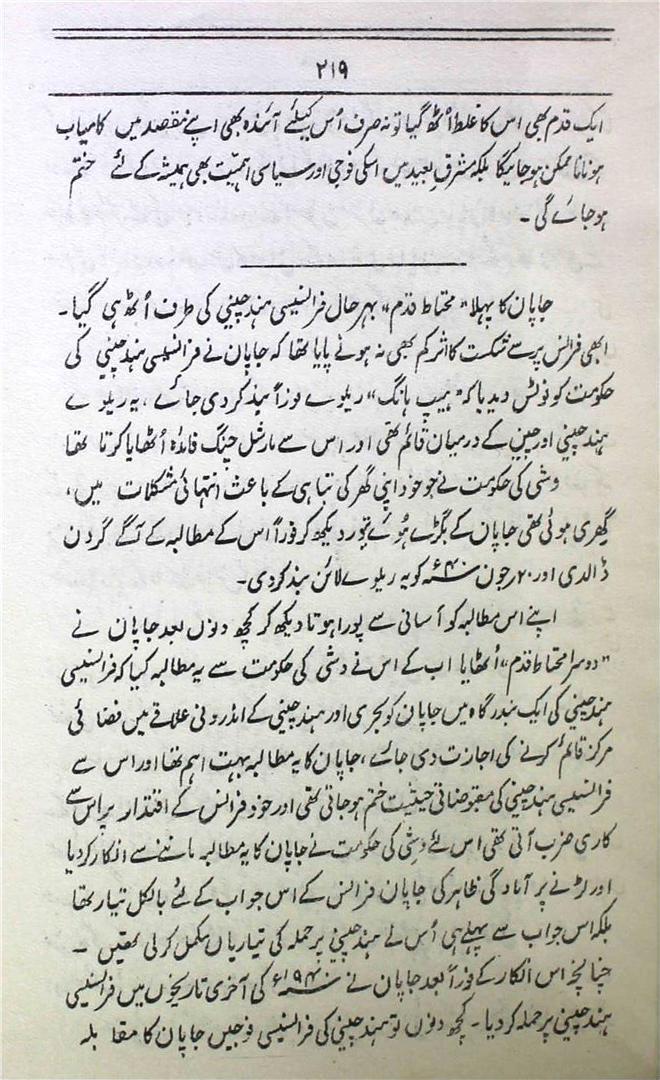 ۲۱۹
ایک قدم بھی اس کا غلط اُٹھ گیا تو نہ صرف اُس کیلئے آئندہ بھی اپنے مقصد میں کامیاب
ہونا ناممکن ہو جائیگا بلکہ مشرق بعید میں اسکی فوجی اور سیاسی اہمیّت بھی ہمیشہ کے لئے ختم
ہو جائے گی ۔
جاپان کا پہلا "محتاط قدم" بہرحال فرانسیسی ہند چینی کی طرف اُٹھ ہی گیا۔
ابھی فرانس پر سے شکست کا اثر کم بھی نہ ہونے پایا تھا کہ جاپان نے فرانسیسی ہند چینی کی
حکومت کو نوٹس دیدیا کہ "ہیپ ہانگ" ریلوے فوراً بند کر دی جائے ، یہ ریلوے
ہند چینی اور چین کے درمیان قائم تھی اور اس سے مارشل چینگ فائدہ اُٹھایا کرتا تھا
وشی کی حکومت نے جو خود اپنی گھر کی تباہی کے باعث انتہائی مشکلات میں،
گھری ہوئی تھی جاپان کے بگڑے ہُوئے تیور دیکھ کر فوراً اس کے مطالبہ کے آگے گردن
ڈالدی اور ۲۰ جون ۴۰ء کو یہ ریلوے لائن بند کر دی۔
اپنے اس مطالبہ کو آسانی سے پورا ہوتا دیکھ کر کچھ دنوں بعد جاپان نے
"دوسرا محتاط قدم" اُٹھایا اب کے اس نے وشی کی حکومت سے یہ مطالبہ کیا کہ فرانسیسی
ہند چینی کی ایک بندرگاہ میں جاپان کو بحری اور ہند چینی کے اندرونی علاقے میں فضائی
مرکز قائم کرنے کی اجازت دی جائے ، جاپان کا یہ مطالبہ بہت اہم تھا اور اس سے
فرانسیسی ہند چینی کی مقبوضاتی حیثیت ختم ہو جاتی تھی اور خود فرانس کے اقتدار پر اس سے
کاری ضرب آتی تھی اس لئے وشی کی حکومت نے جاپان کا یہ مطالبہ ماننے سے انکار کر دیا
اور لڑنے پر آمادگی ظاہر کی جاپان فرانس کے اس جواب کے لئے بالکل تیار تھا
بلکہ اس جواب سے پہلے ہی اُس نے ہند چینی پر حملہ کی تیاریاں مکمل کر لی تھیں ۔
چنانچہ اس انکار کے فوراً بعد جاپان نے ۱۹۴۰ء کی آخری تاریخوں میں فرانسیسی
ہند چینی پر حملہ کر دیا ۔ کچھ دنوں تو ہند چینی کی فرانسیسی فوجیں جاپان کا مقابلہ